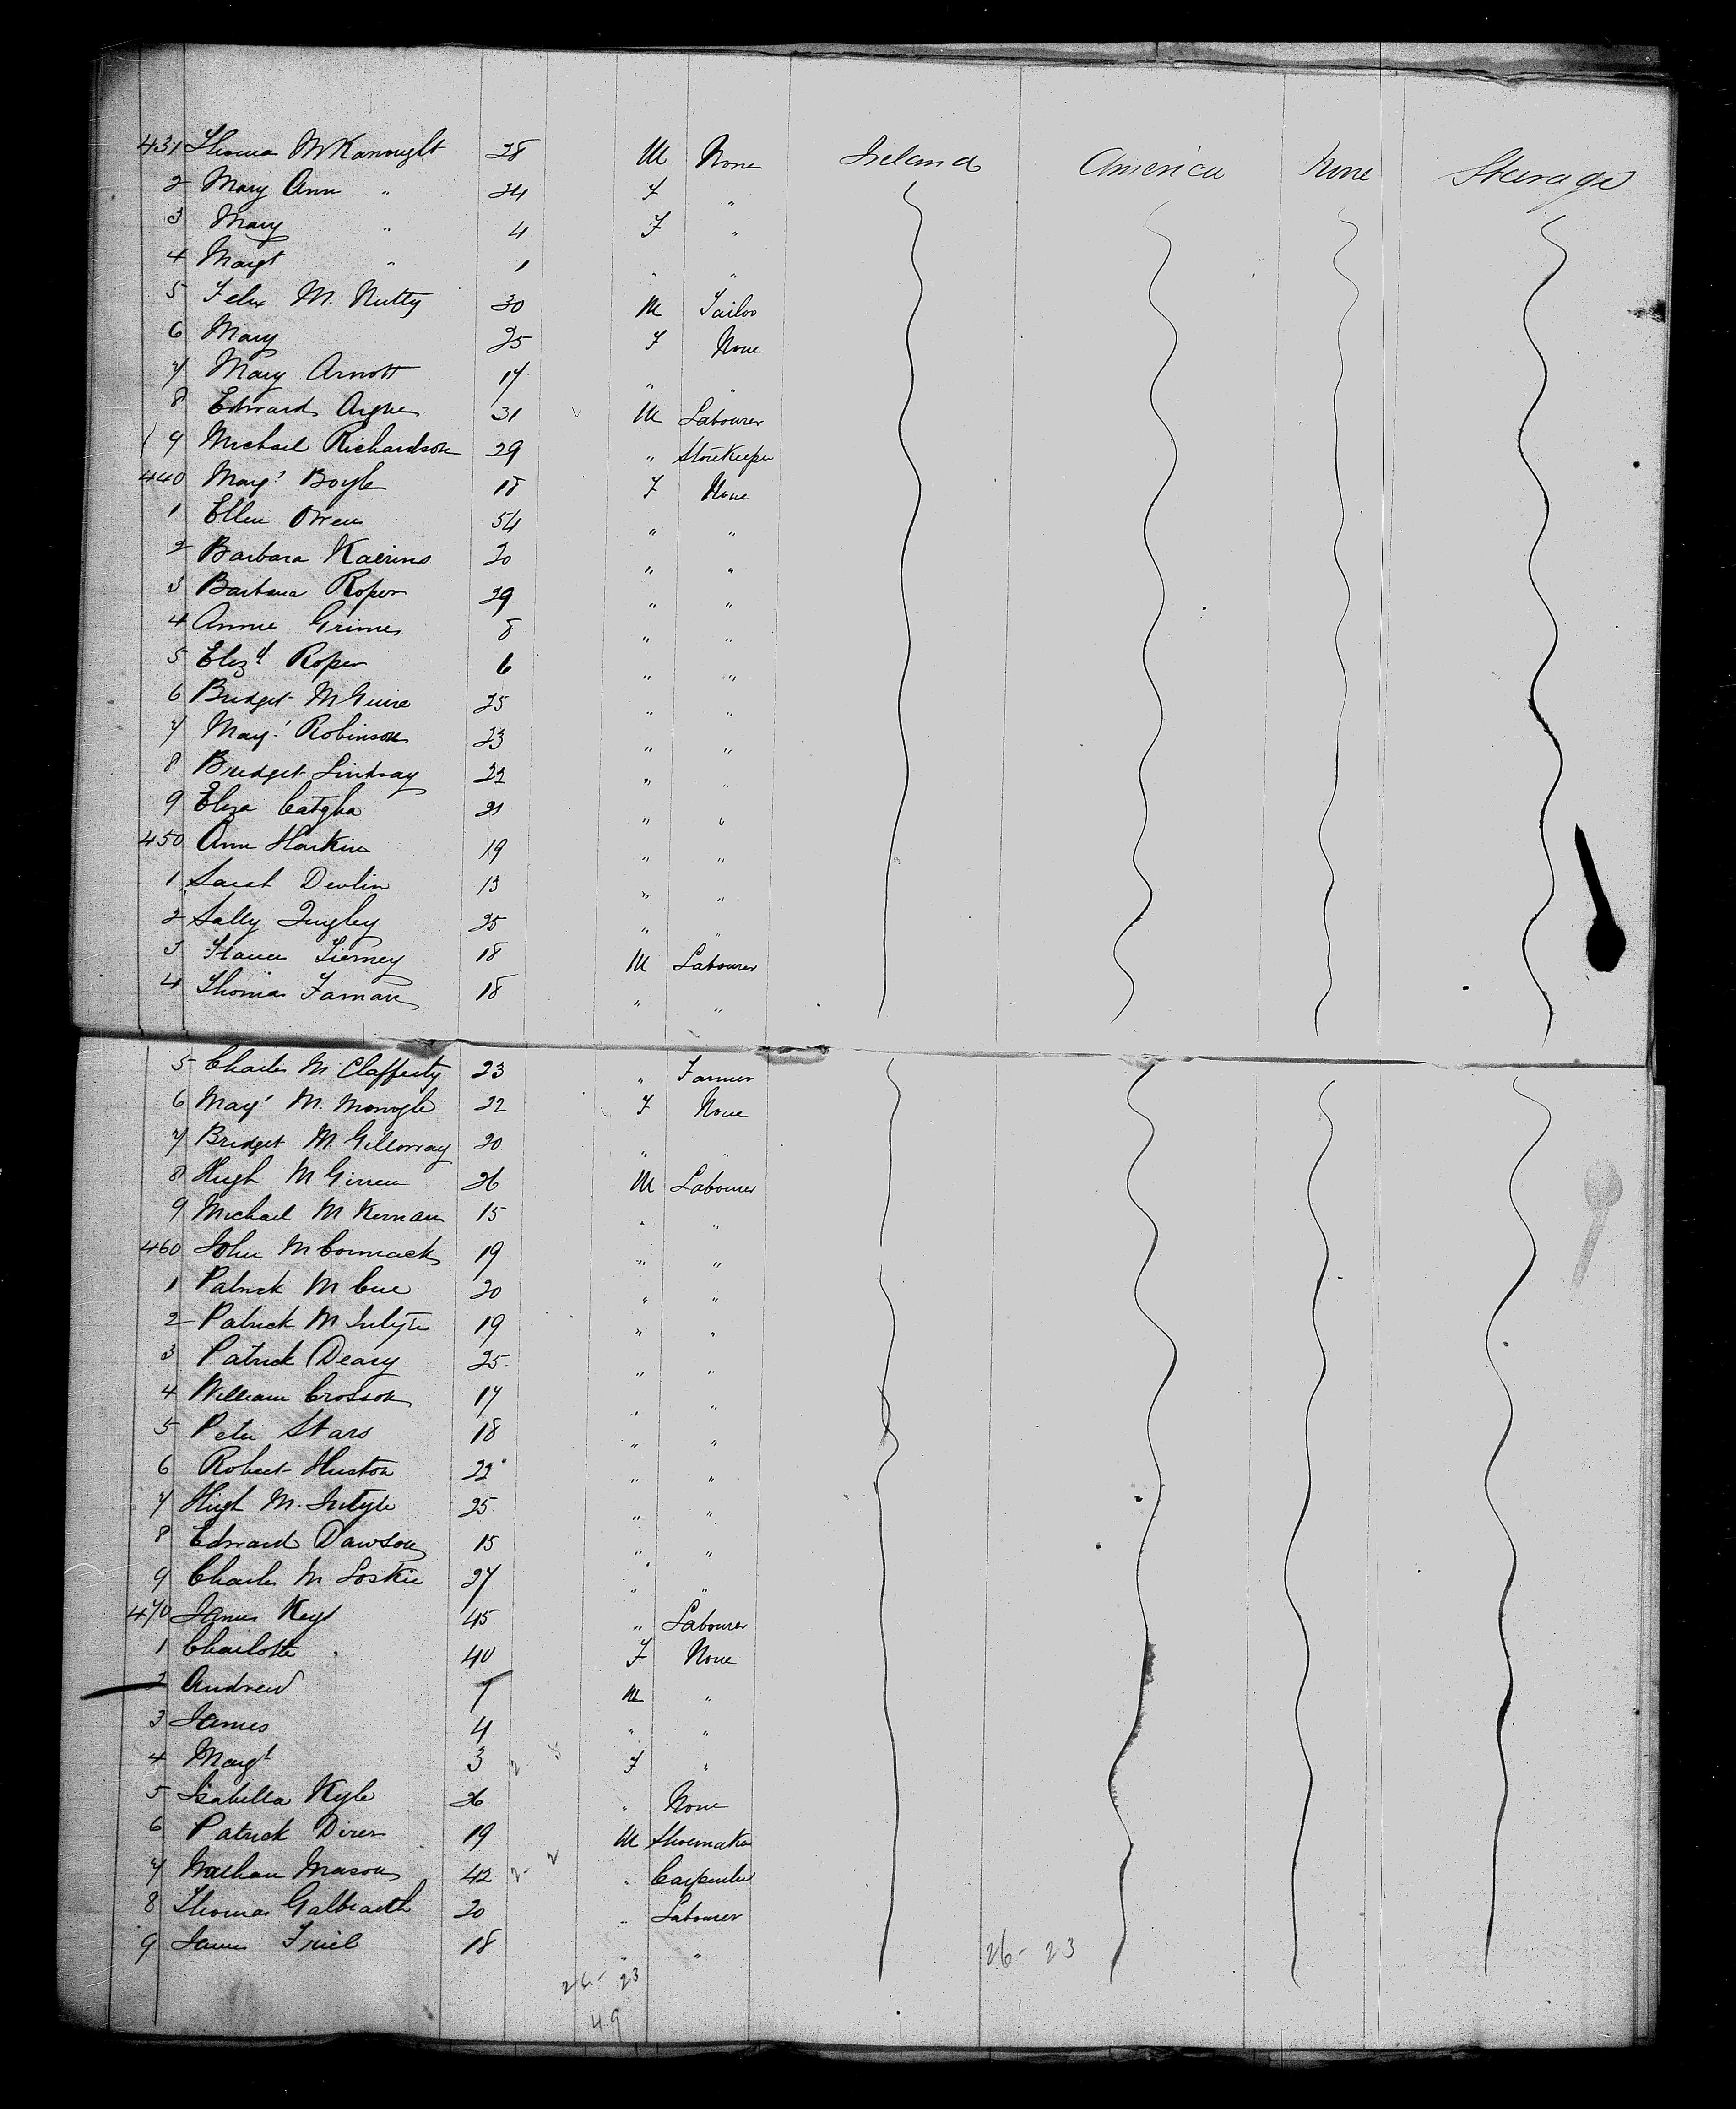 431 Thomas McKanought 28 M None Ireland America None Steerage
2 Mary Ann " 24 F "
3 Mary " 4 F "
4 Margt " 1 " "
5 Felix M. Nutty 30 M Tailor
6 Mary 25 F None
7 Mary Arnott 17 " "
8 Edward Argue 31 M Labourer
9 Michael Richardson 29 " Storekeeper
440 Margt Boyle 18 F None
1 Ellen Owens 54 " "
2 Barbara Kaerins 20 " "
3 Barbara Roper 29 " "
4 Annie Grimes 8 " "
5 Elizth Roper 6 " "
6 Bridget McGuire 25 " "
7 Margt Robinson 23 " "
8 Bridget Lindsay 22 " "
9 Eliza 21 " "
450 Ann Harkin 19 " "
1 Sarah Devlin 13 " "
2 Sally Quigley 25 " "
3 Francis Tierney 18 M Labourer
4 Thomas Farnan 18 " "
5 Charles McClafferty 23 " Farmer
6 Margt M. Monogle 22 F None
7 Bridget McGilloway 20 " "
8 Hugh McGirren 26 M Labourer
9 Michael McKernan 15 " "
460 John McCormack 19 " "
1 Patrick McCue 20 " "
2 Patrick McIntyre 19 " "
3 Patrick Deary 25 " "
4 William Crosson 17 " "
5 Peter Stars 18 " "
6 Robert Huston 22 " "
7 Hugh M. Intyre 25 " "
8 Edward Dawson 15 " "
9 Charles McLoskie 27 " "
470 James Keys 45 " Labourer
1 Charlotte 40 F None
2 Andrew 7 M "
3 James 4 " "
4 Margt 3 F "
5 Isabella Kyle 26 " None
6 Patrick Diver 19 M Shoemaker
7 Nathan Mason 42 " Carpenter
8 Thomas Galbraith 20 " Labourer
9 James Friel 18 " "
26- 23
26- 23
49